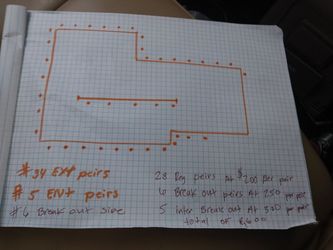 # 34 EXT pairs
# 5 ENT pairs
# 6 Break out side
28 Reg pairs At $200 per pair
6 Break out pairs At 250 per pair
5 inter Break out At 300 per pair
total of 8,600